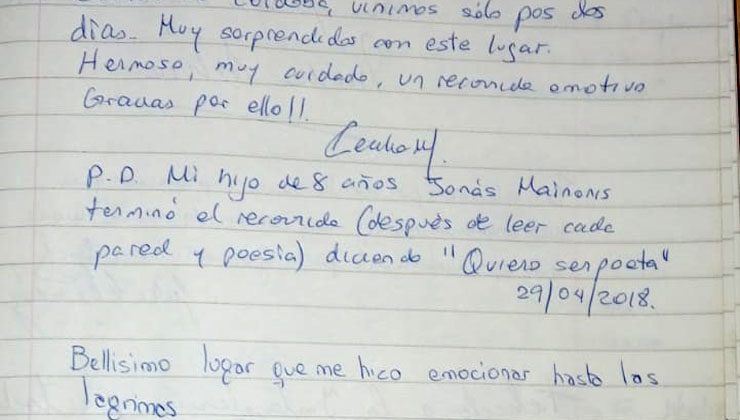 vinimos sólo por dos
días. Muy sorprendidos con este lugar.
Hermoso, muy cuidado, un recorrido emotivo
Gracias por ello!!
P.D. Mi hijo de 8 años Jonás Mainonis
terminó el recorrido (después de leer cada
pared y poesía) diciendo "Quiero ser poeta"
29/04/2018.
Bellisimo lugar que me hico emocionar hasta las
lagrimas